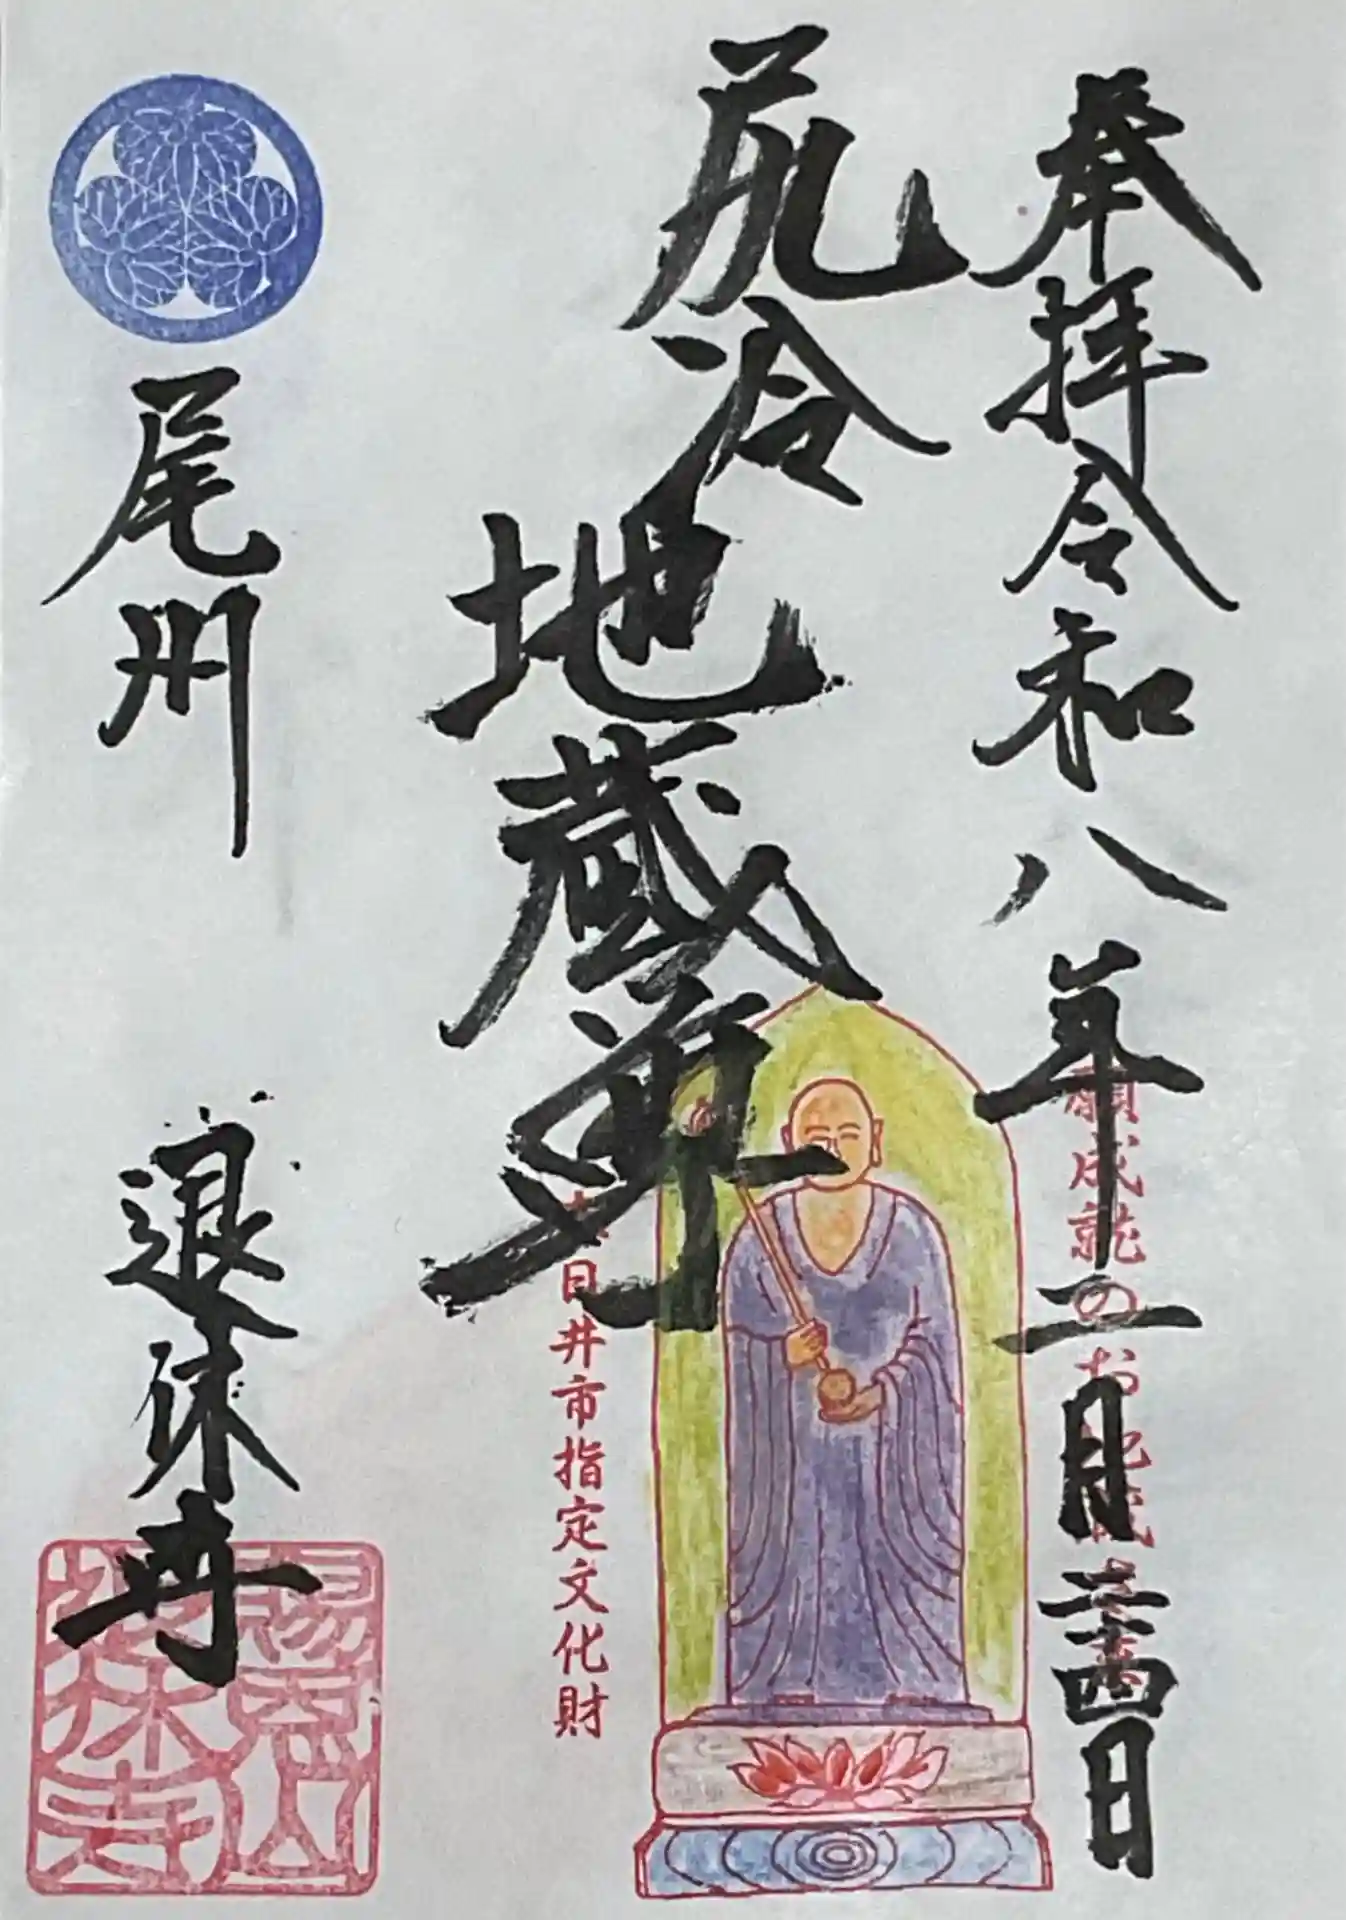 奉拝令和八年二月二十四日
願成就のお地蔵さま
尻冷地蔵尊
春日井市指定文化財
尾州 退休寺
賜恩山
退休寺